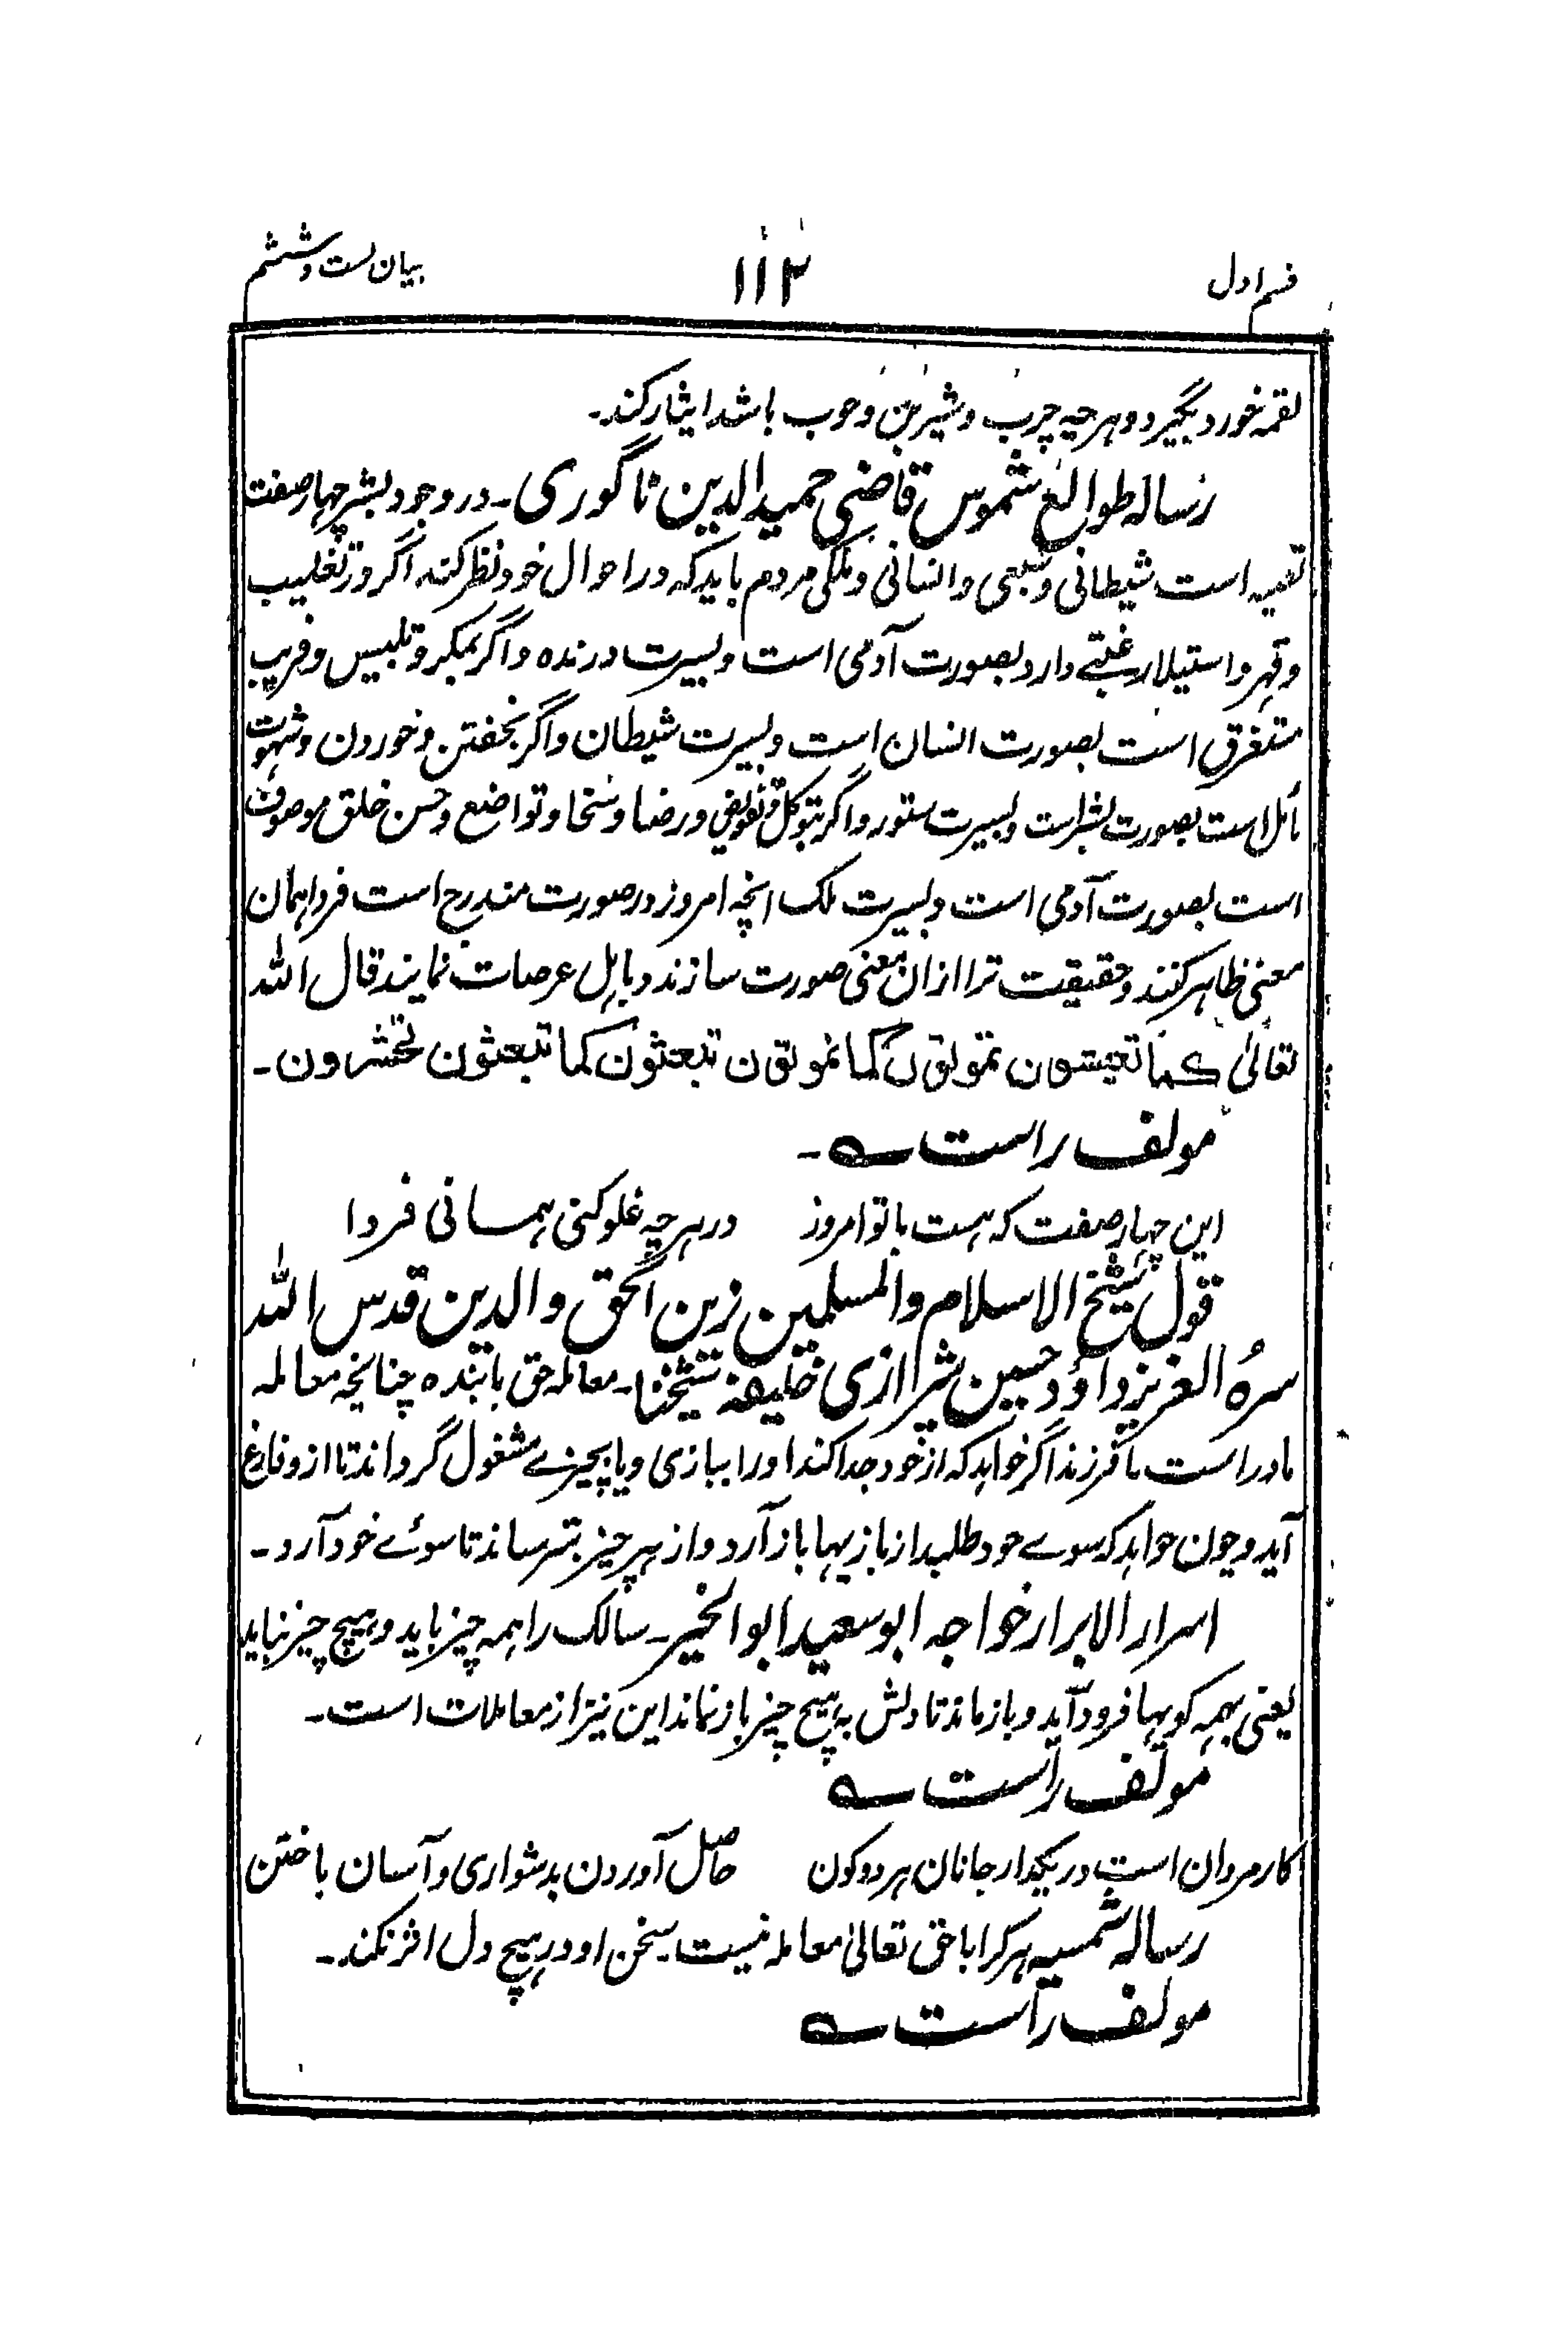 قسم اول
۱۱۳
بیان بست و ششم
لقمه خورد بگیرد و هرچه چرب و شیرین و خوب باشد ایثار کند۔
رساله طوالع شموس قاضی حمیدالدین ناگوری۔ در وجود بشر چهار صفت
تعبیه است شیطانی و سبعی و انسانی و ملکی مردم باید که در احوال خود نظر کند اگر در تغلیب
و قهر و استیلا رغبتے دارد بصورت آدمی است و بسیرت درنده و اگر بمکر و تلبیس و فریب
مستغرق است بصورت انسان است و بسیرت شیطان و اگر بخفتن و خوردن و شهوت
مائل است بصورت بشر است و بسیرت ستور و اگر بتوکل و تفویض و رضا و سخا و تواضع و حسن خلق موصوف
است بصورت آدمی است و بسیرت ملک انچه امروز در صورت مندرج است فردا همان
معنی ظاهر کنند و حقیقت ترا ازان معنی صورت سازند و باهل عرصات نمایند قال الله
تعالیٰ کما تعیشون تموتون کما تموتون تبعثون کما تبعثون تحشرون۔
مولف راست ے۔
این چهار صفت که هست با تو امروز در هرچه غلو کنی همانی فردا
قول شیخ الاسلام والمسلمین زین الحق والدین قدس الله
سرهُ العزیز داؤد حسین شیرازی خلیفه شیخنا۔ معامله حق با بنده چنانچه معامله
مادر است با فرزند اگر خواهد که از خود جدا کند او را ببازی و یا بچیزے مشغول گرداند تا ازو فارغ
آید و چون خواهد که سوے خود طلبد از بازیها باز آرد و از هر چیز بترساند تا سوئے خود آرد۔
اسرار الابرار خواجه ابوسعید ابوالخیر۔ سالک را همه چیز باید و هیچ چیز نباید
یعنی بهمه کویها فرود آید و باز ماند تا دلش به هیچ چیز باز نماند این نیز از معاملات است۔
مولف راست ے
کار مردان است در یکدار جانان هر دو کون حاصل آوردن بدشواری و آسان باختن
رساله شمسیه هر کرا با حق تعالیٰ معامله نیست سخن او در هیچ دل اثر نکند۔
مولف راست ے